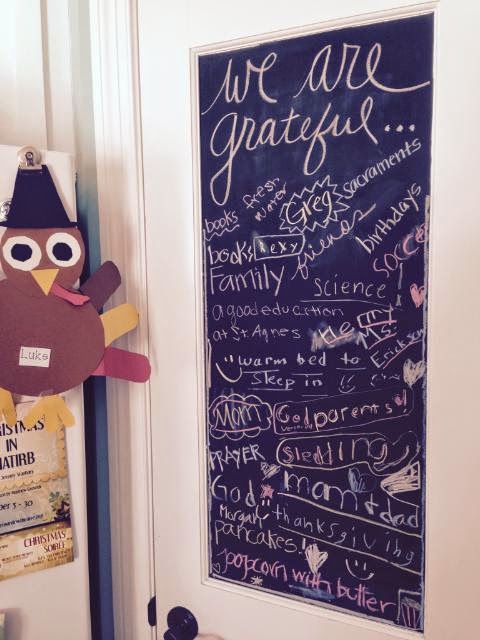 we are
grateful...
books fresh water Greg sacraments
birthdays
books
friends
Family
soccer
science
a good education
at St Agnes
Henry
Ms. Erickson
warm bed to
sleep in
Mom
Godparents!
PRAYER
sledding
God
mom & dad
Morgan
thanksgiving
pancakes!
popcorn with butter
Luke
IN
CHRISTMAS
SOIRÉE